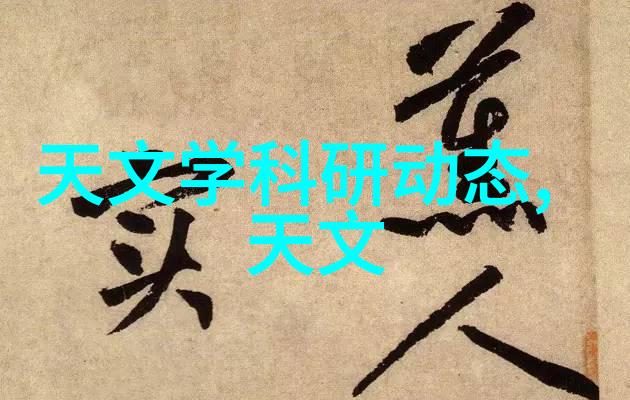 天文学科研动态,
天文
人